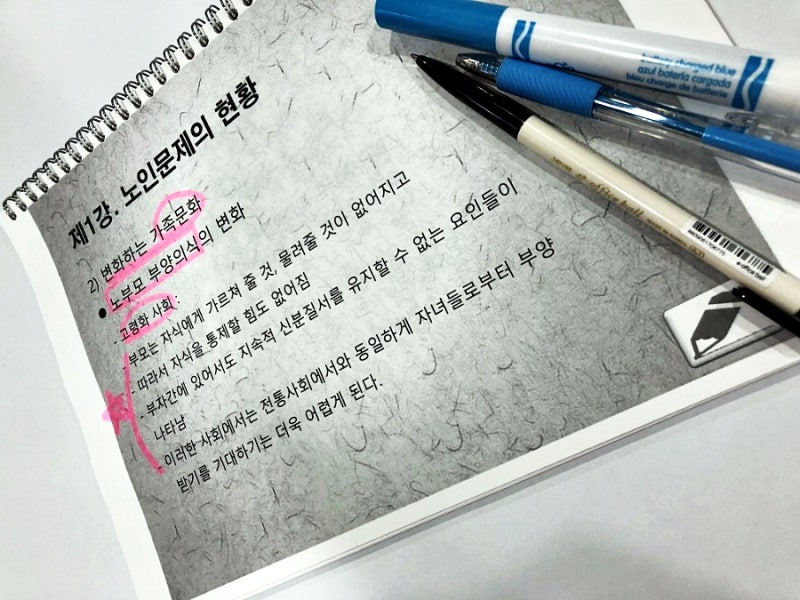 제1강. 노인문제의 현황
2) 변화하는 가족문화
● 노부모 부양의식의 변화
고령화 사회 :
- 부모는 자식에게 가르쳐 줄 것, 물려줄 것이 없어지고
- 따라서 자식을 통제할 힘도 없어짐
- 부자간에 있어서도 지속적 신분질서를 유지할 수 없는 요인들이
나타남
- 이러한 사회에서는 전통사회에서와 동일하게 자녀들로부터 부양
받기를 기대하기는 더욱 어렵게 된다.
battery charged blue
azul batería cargada
bleu charge de batterie